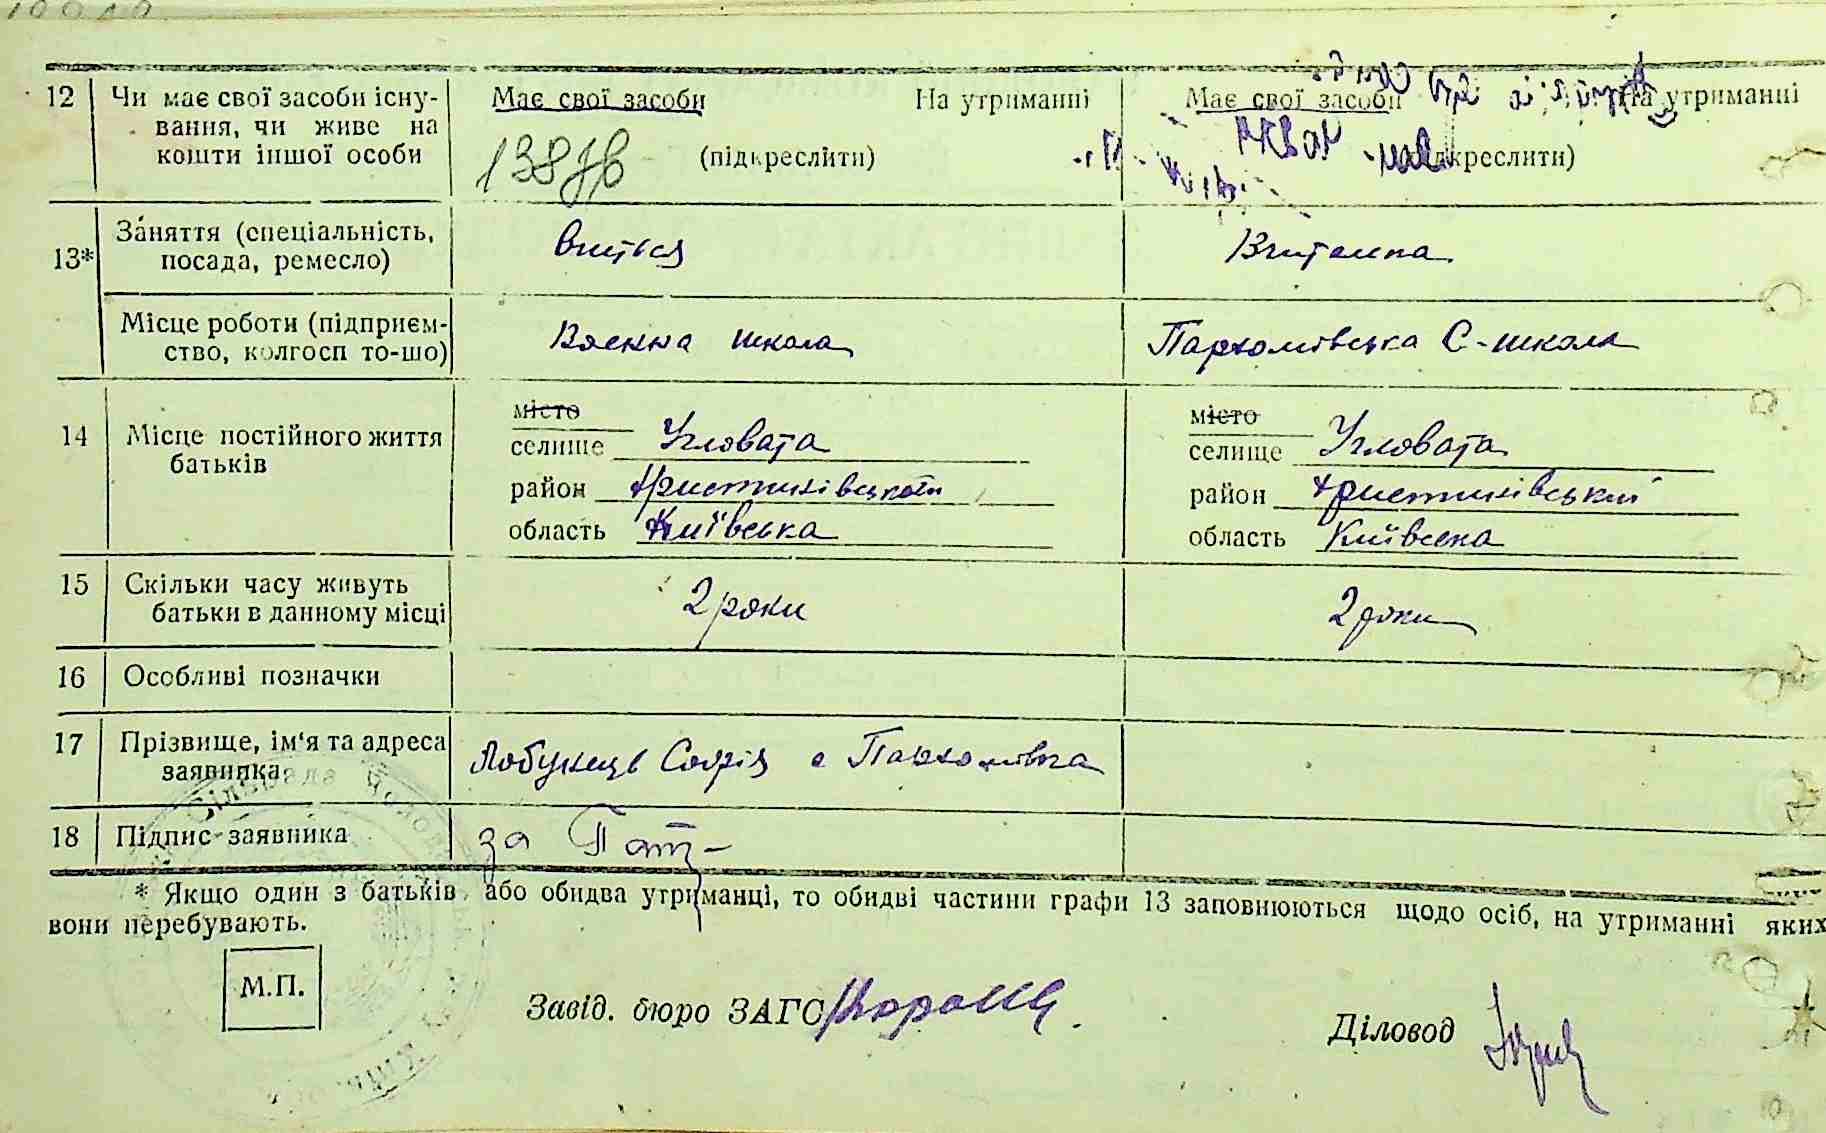 12 Чи має свої засоби існу- Має свої засоби На утриманні Має свої засоби На утриманні
вання, чи живе на
кошти іншої особи (підкреслити) (підкреслити)
13* Заняття (спеціальність, Вчиться Вчителка
посада, ремесло)
Місце роботи (підприєм- Воєнна школа Пархомівська С-школа
ство, колгосп то-шо)
місто місто
14 Місце постійного життя селище Угловата селище Угловата
батьків
район Христинівський район Христинівський
область Київська область Київська
15 Скільки часу живуть 2 роки 2 роки
батьки в данному місці
16 Особливі позначки
17 Прізвище, ім'я та адреса Софія с Пархомівка
заявника
18 Підпис заявника за
* Якщо один з батьків або обидва утриманці, то обидві частини графи 13 заповнюються щодо осіб, на утриманні яких
вони перебувають.
М.П.
Завід. бюро ЗАГС
Діловод